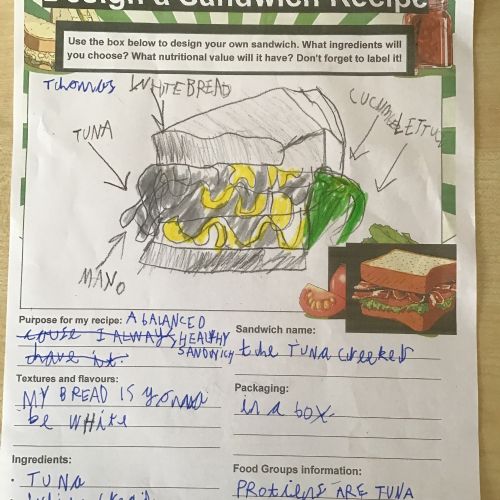 Design a Sandwich Recipe
Use the box below to design your own sandwich. What ingredients will
you choose? What nutritional value will it have? Don't forget to label it!
Thomas WHITE BREAD
CUCUMBER LETTUCE
TUNA
MANO
Purpose for my recipe: A bALANCED
couse I ALWAYS HEALTHY
have it. SANDWICH
Sandwich name:
the TUNA creeker
Textures and flavours:
MY BREAD IS gonna
be wHite
Packaging:
in a box
Ingredients:
• TUNA
Food Groups information:
PRotiens ARE TUNA